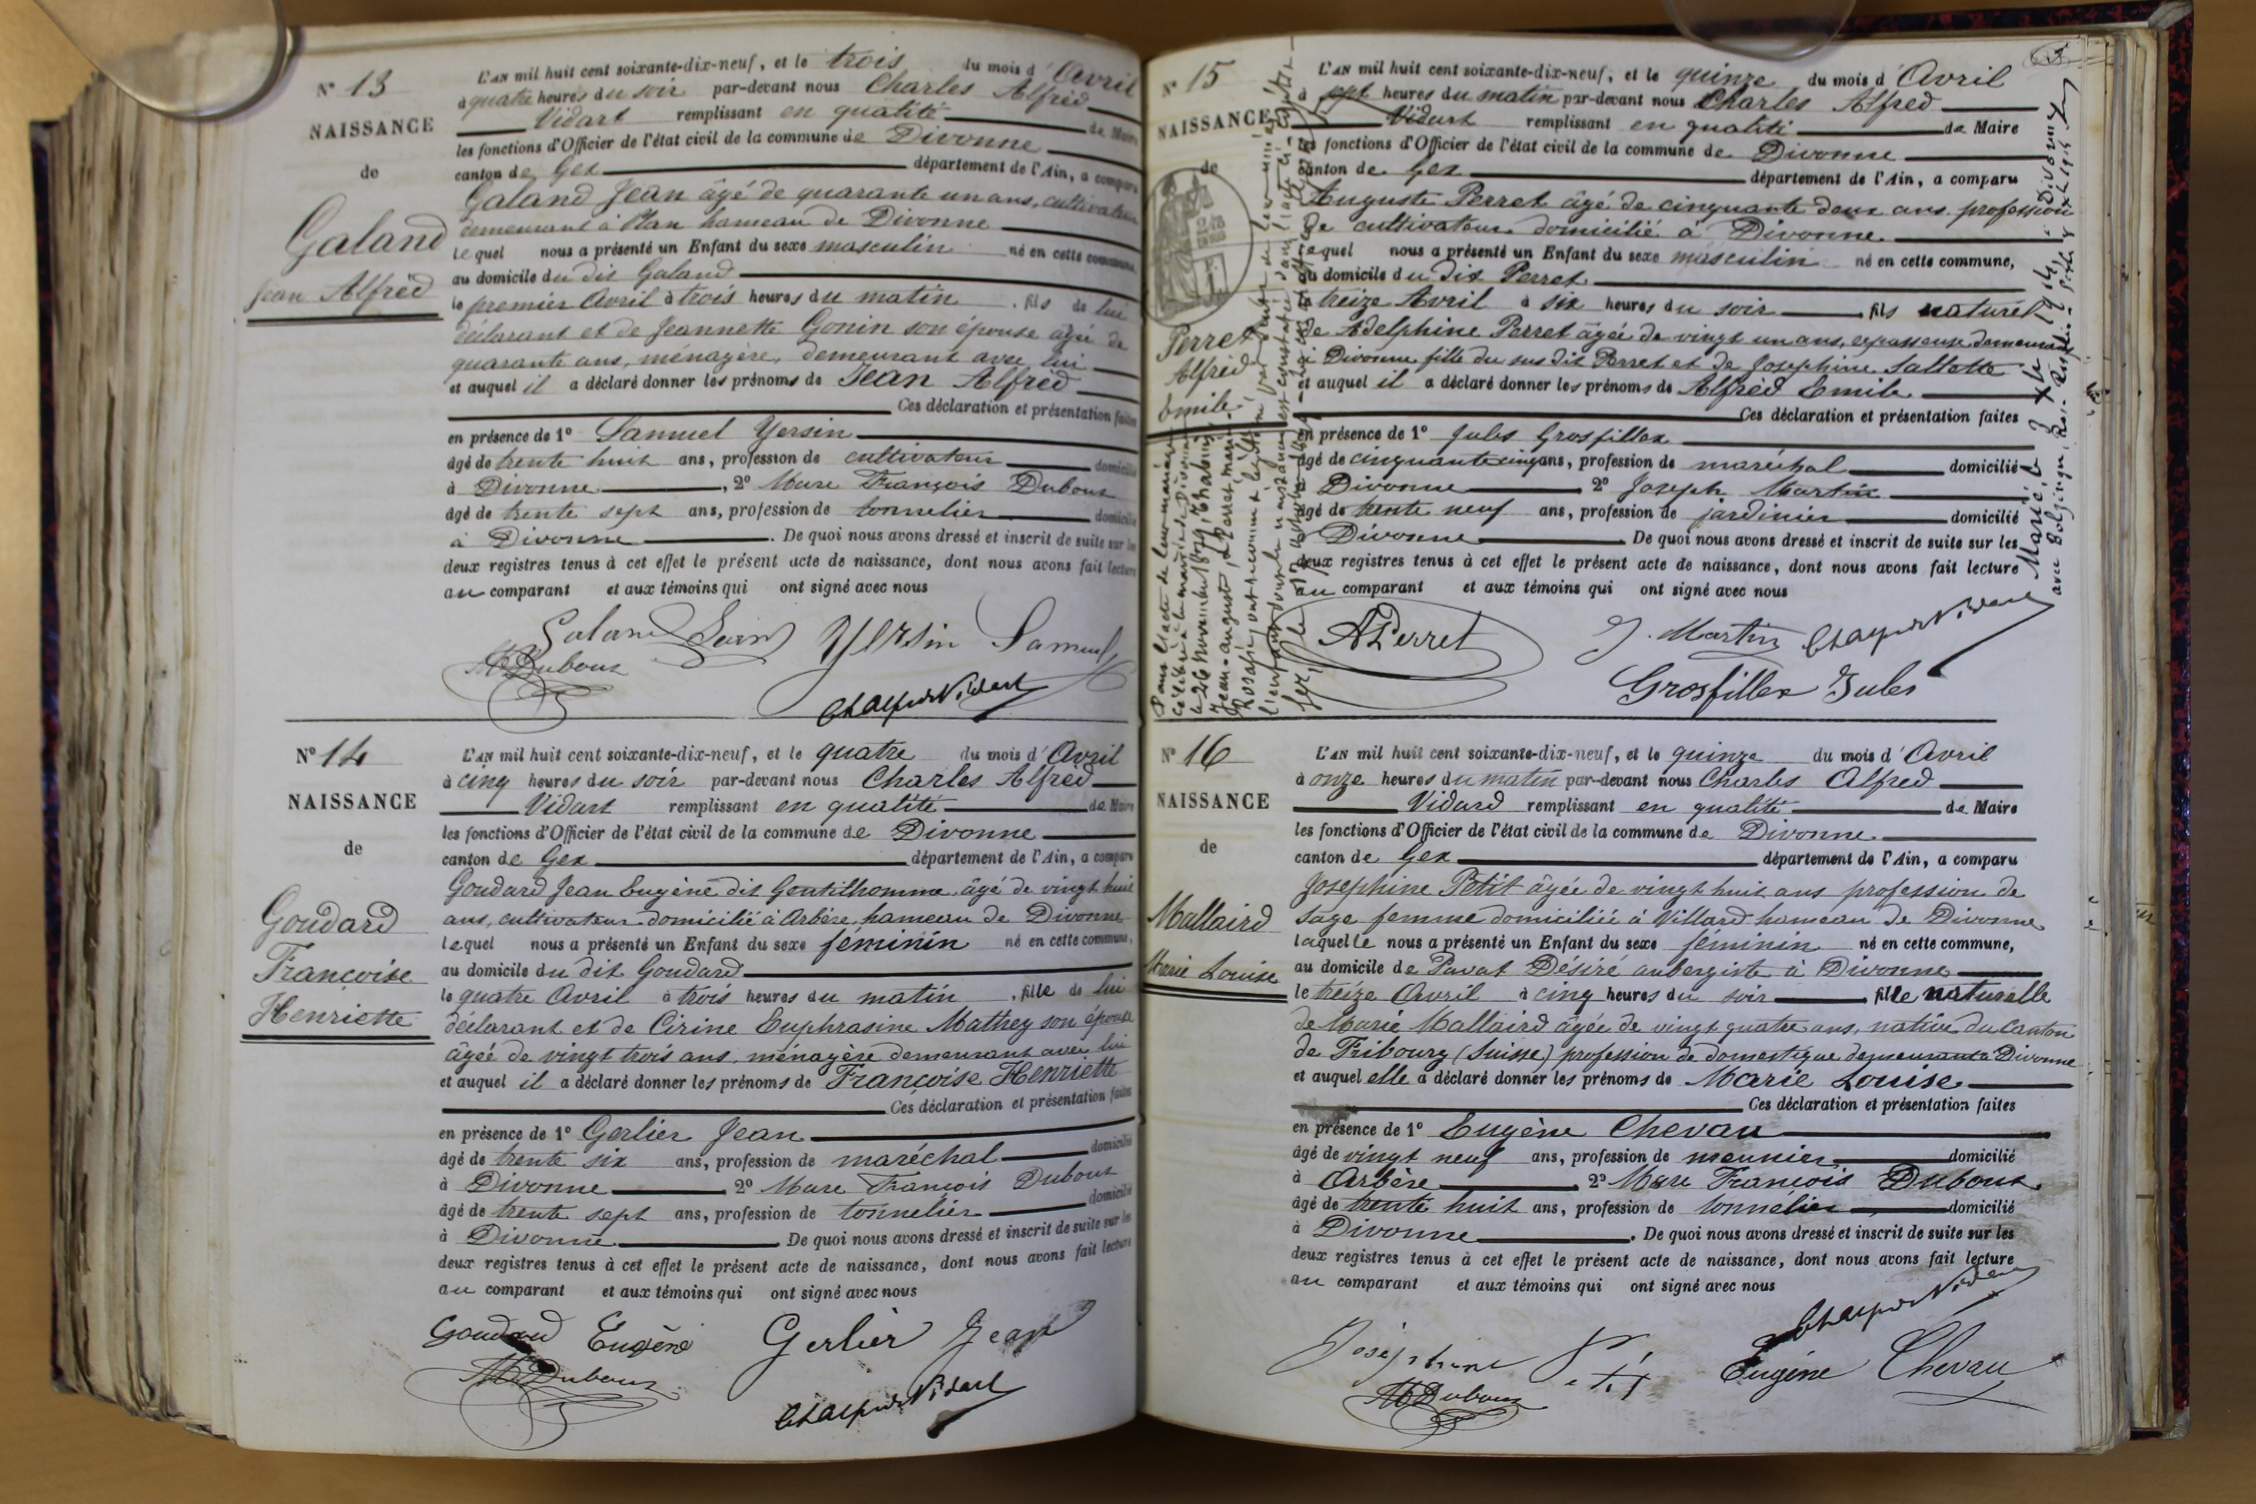 N° 13
NAISSANCE
de
Galand
Jean Alfred
L'AN mil huit cent soixante-dix-neuf, et le trois du mois d'Avril
à quatre heures du soir par-devant nous Charles Alfred
Vidart remplissant en qualité de Maire
les fonctions d'Officier de l'état civil de la commune de Divonne
canton de Gex département de l'Ain, a comparu
Galand Jean âgé de quarante un ans, cultivateur
demeurant à Plan hameau de Divonne
lequel nous a présenté un Enfant du sexe masculin né en cette commune,
au domicile du dit Galand
le premier Avril à trois heures du matin, fils de lui
déclarant et de Jeannette Gonin son épouse âgée de
quarante ans, ménagère, demeurant avec lui
et auquel il a déclaré donner les prénoms de Jean Alfred
Ces déclaration et présentation faites
en présence de 1° Samuel Yersin
âgé de trente huit ans, profession de cultivateur domicilié
à Divonne, 2° Marc François Duboux
âgé de trente sept ans, profession de tonnelier domicilié
à Divonne. De quoi nous avons dressé et inscrit de suite sur les
deux registres tenus à cet effet le présent acte de naissance, dont nous avons fait lecture
au comparant et aux témoins qui ont signé avec nous
Galand Jean Yersin Samuel
MDuboux
Ch Alfred Vidart
N° 14
NAISSANCE
de
Goudard
Françoise
Henriette
L'AN mil huit cent soixante-dix-neuf, et le quatre du mois d'Avril
à cinq heures du soir par-devant nous Charles Alfred
Vidart remplissant en qualité de Maire
les fonctions d'Officier de l'état civil de la commune de Divonne
canton de Gex département de l'Ain, a comparu
Goudard Jean Eugène dit Gentilhomme âgé de vingt huit
ans, cultivateur domicilié à Arbère hameau de Divonne
lequel nous a présenté un Enfant du sexe féminin né en cette commune,
au domicile du dit Goudard
le quatre Avril à trois heures du matin, fille de lui
déclarant et de Cirine Euphrasine Mathey son épouse
âgée de vingt trois ans, ménagère demeurant avec lui
et auquel il a déclaré donner les prénoms de Françoise Henriette
Ces déclaration et présentation faites
en présence de 1° Gerlier Jean
âgé de trente six ans, profession de maréchal domicilié
à Divonne 2° Marc François Duboux
âgé de trente sept ans, profession de tonnelier domicilié
à Divonne. De quoi nous avons dressé et inscrit de suite sur les
deux registres tenus à cet effet le présent acte de naissance, dont nous avons fait lecture
au comparant et aux témoins qui ont signé avec nous
Goudard Eugène Gerlier Jean
MDuboux
Ch Alfred Vidart
N° 15
NAISSANCE
de
Perret
Alfred
Emile
L'AN mil huit cent soixante-dix-neuf, et le quinze du mois d'Avril
à sept heures du matin par-devant nous Charles Alfred
Vidart remplissant en qualité de Maire
les fonctions d'Officier de l'état civil de la commune de Divonne
canton de Gex département de l'Ain, a comparu
Auguste Perret âgé de cinquante deux ans profession
de cultivateur domicilié à Divonne
lequel nous a présenté un Enfant du sexe masculin né en cette commune,
au domicile du dit Perret
le treize Avril à six heures du soir fils naturel
de Adelphine Perret âgée de vingt un ans, repasseuse demeurant
à Divonne fille du sus dit Perret et de Josephine Sallette
et auquel il a déclaré donner les prénoms de Alfred Emile
Ces déclaration et présentation faites
en présence de 1° Jules Grosfillex
âgé de cinquante cinq ans, profession de maréchal domicilié
à Divonne 2° Joseph Martin
âgé de trente neuf ans, profession de jardinier domicilié
à Divonne De quoi nous avons dressé et inscrit de suite sur les
deux registres tenus à cet effet le présent acte de naissance, dont nous avons fait lecture
au comparant et aux témoins qui ont signé avec nous
APerret J. Martin Ch Alfred Vidart
Grosfillex Jules
Dans l'acte de leur mariage
célébré à la mairie de Divonne
le 26 Novembre 1879,
Jean-auguste et Perret Marie
Marié à Divonne
N° 16
NAISSANCE
de
Mallaird
Marie Louise
L'AN mil huit cent soixante-dix-neuf, et le quinze du mois d'Avril
à onze heures du matin par-devant nous Charles Alfred
Vidard remplissant en qualité de Maire
les fonctions d'Officier de l'état civil de la commune de Divonne
canton de Gex département de l'Ain, a comparu
Josephine Petit âgée de vingt huit ans profession de
sage femme domiciliée à Villard hameau de Divonne
laquelle nous a présenté un Enfant du sexe féminin né en cette commune,
au domicile de Pavat Désiré aubergiste à Divonne
le treize Avril à cinq heures du soir, fille naturelle
de Marie Mallaird âgée de vingt quatre ans, native du Canton
de Fribourg (Suisse) profession de domestique demeurant à Divonne
et auquel elle a déclaré donner les prénoms de Marie Louise
Ces déclaration et présentation faites
en présence de 1° Eugène Chevau
âgé de vingt neuf ans, profession de meunier domicilié
à Arbère 2° Marc François Duboux
âgé de trente huit ans, profession de tonnelier domicilié
à Divonne. De quoi nous avons dressé et inscrit de suite sur les
deux registres tenus à cet effet le présent acte de naissance, dont nous avons fait lecture
au comparant et aux témoins qui ont signé avec nous
Ch Alfred Vidart
Joséphine Petit Eugène Chevau
MDuboux